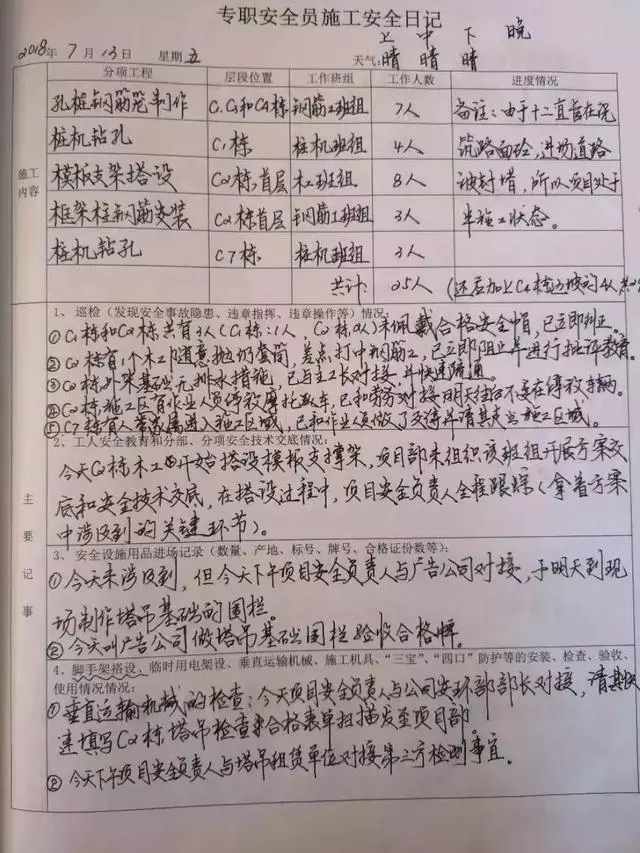 专职安全员施工安全日记
上 中 下 晚
2018年 7月 13日 星期五 天气:晴 晴 晴
分项工程 层段位置 工作班组 工作人数 进度情况
施工内容
孔桩钢筋笼制作 C1 C3和C4栋 钢筋工班组 7人 备注:由于十二直管在浇
桩机钻孔 C1栋 桩机班组 4人 筑路面砼,进场道路
模板支架搭设 C2栋首层 木工班组 8人 被封堵,所以项目处于
框架柱钢筋安装 C2栋首层 钢筋工班组 3人 半施工状态。
桩机钻孔 C7栋 桩机班组 3人
共计: 25人 (还后加上C4栋边坡的4人共
主要记事
1、巡检(发现安全事故隐患、违章指挥、违章操作等)情况:
①C1栋和C2栋共有3人(C1栋:1人,C2栋2人)未佩戴合格安全帽,已立即纠正。
②C2栋有1个木工随意抛扔套筒,差点打中钢筋工,已立即阻止并进行批评教育。
③C2栋外架基础无排水措施,已与主工长对接,并快速疏通。
④C2栋施工区有作业人员停放摩托车,已和劳务对接明天往后不要在停放车辆。
⑤C7栋有人带家属进入施工区域,已和作业人员做了交待并请其走出施工区域。
2、工人安全教育和分部、分项安全技术交底情况:
今天C2栋木工开始搭设模板支撑架,项目部未组织该班组开展方案交
底和安全技术交底,在搭设过程中,项目安全负责人全程跟踪(拿着方案
中涉及到的关键环节)。
3、安全设施用品进场记录(数量、产地、标号、牌号、合格证份数等):
①今天未涉及到,但今天下午项目安全负责人与广告公司对接,于明天到现
场制作塔吊基础的围栏。
②今天叫广告公司做塔吊基础围栏验收合格牌。
4、脚手架搭设、临时用电架设、垂直运输机械、施工机具、“三宝”、“四口”防护等的安装、检查、验收、
使用情况情况:
①垂直运输机械的检查:今天项目安全负责人与公司安环部部长对接,请其快
速填写C2栋塔吊检查合格表单扫描发至项目部。
②今天下午项目安全负责人与塔吊租赁单位对接第三方检测事宜。